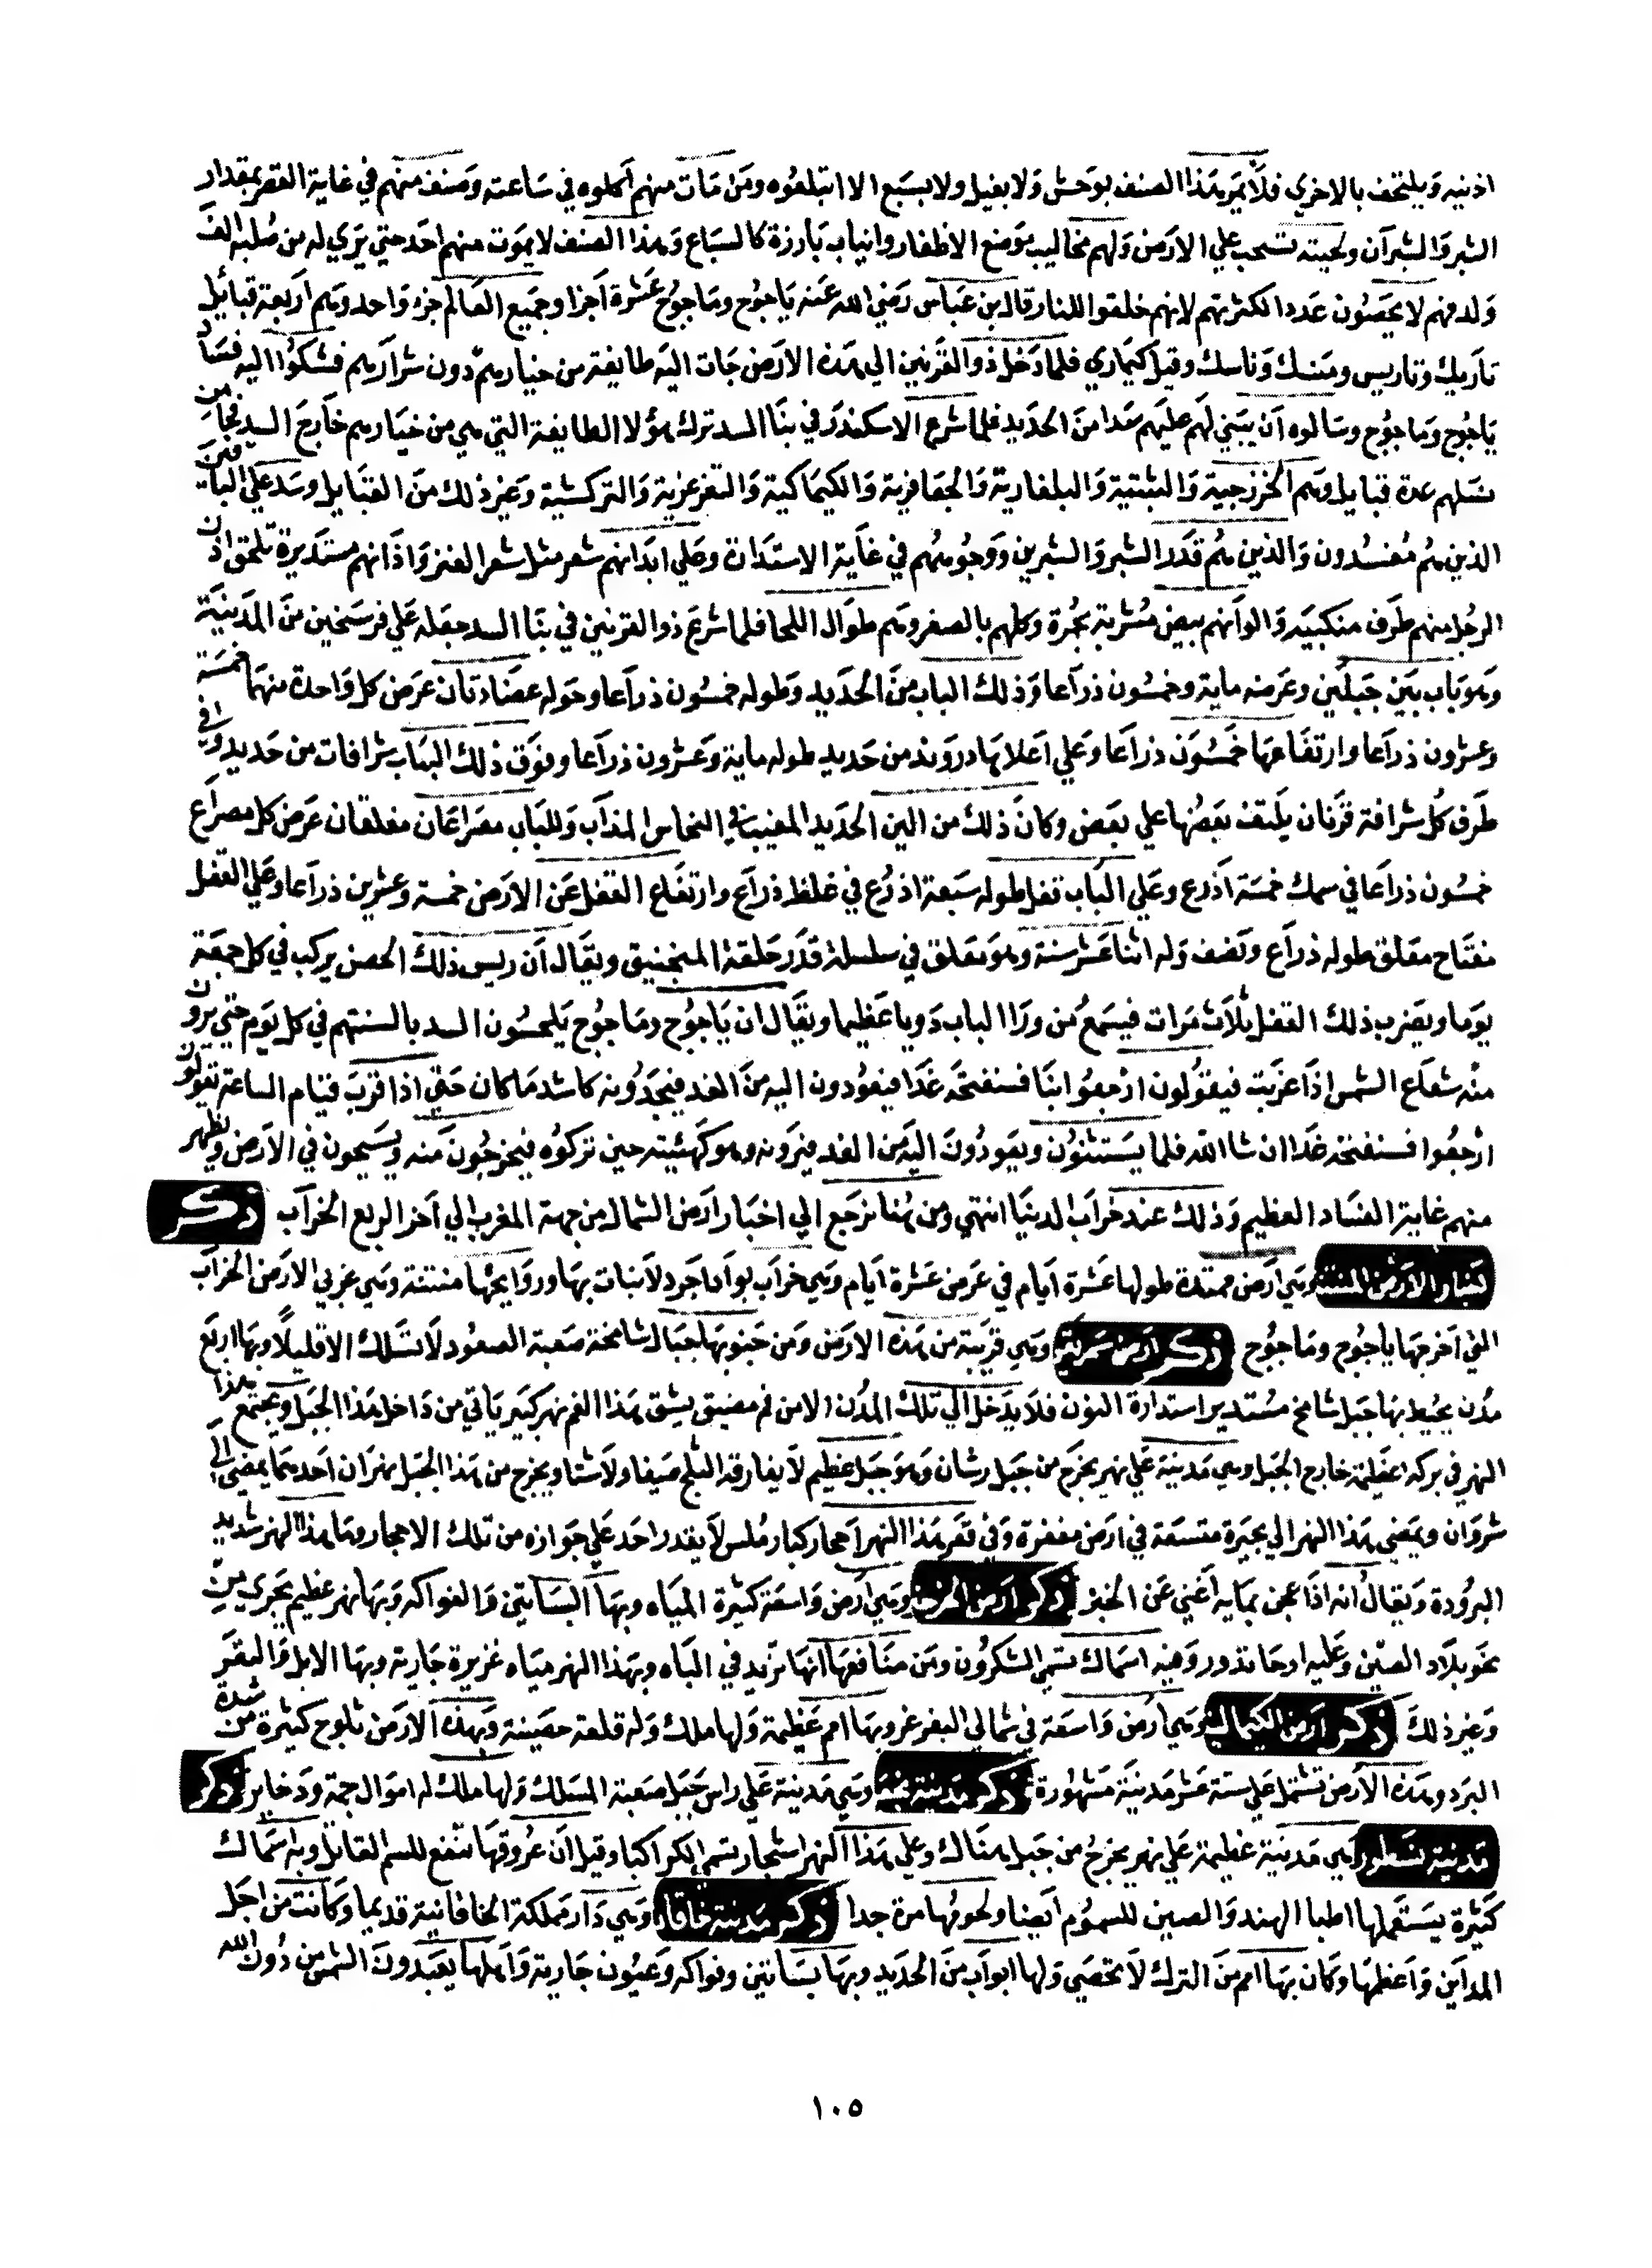 اذنيه ويلتحف بالاخري فلا يمر بهذا الصنف بوحش ولا بفيل ولا بسبع الا ابتلعوه ومن مات منهم أكلوه في ساعته وصنف منهم في غاية القصر بمقدار
الشبر والشبران ولحيته تسحب علي الارض ولهم مخاليب موضع الاظفار وانياب بارزة كالسباع وهذا الصنف لا يموت منهم احد حتي يري له من صلبه الف
ولد فهم لا يحصون عددا لكثرتهم لانهم خلقوا للنار قال بن عباس رضي الله عنه ياجوج وماجوج عشرة اجزا وجميع العالم جزء واحد وهم اربعة قبائل
تاريك وتاريس ومنسك وناسك وقيل كيماري فلما دخل ذو القرنين الي هذه الارض جات اليه طايفة من خيارهم دون شرارهم فشكوا اليه فساد
ياجوج وماجوج وسالوه ان يبني لهم عليهم سدا من الحديد فلما شرع الاسكندر في بنا السد ترك هؤلا الطايفة التي هي من خيارهم خارج السد فجا من
نسلهم عدة قبايل وهم الخزرجية والبلغارية والكيماكية والتغزغزية والتركشية وغير ذلك من القبايل وسد علي الباقين
الذين هم مفسدون والذين هم قدر الشبر والشبرين ووجوههم في غاية الاستدارة وعلي ابدانهم شعر مثل شعر العنز واذانهم مستديرة تلحق اذن
الرجل منهم طرف منكبيه والوانهم بيض مشربة بحمرة وكلهم بالصفر وهم طوال اللحا فلما شرع ذو القرنين في بنا السد جعله علي فرسخين من المدينة
وهو باب بين جبلين وعرضه ماية وخمسون ذراعا وذلك الباب من الحديد وطوله خمسون ذراعا وحوله عضادتان عرض كل واحدة منهما خمسة
وعشرون ذراعا وارتفاعها خمسون ذراعا وعلي اعلاها دروند من حديد طوله ماية وعشرون ذراعا وفوق ذلك الباب شرافات من حديد وفي
طرف كل شرافة قرنان يلتف بعضها علي بعض وكان ذلك من البن الحديد المغيبة في النحاس المذاب وللباب مصراعان مغلقان عرض كل مصراع
خمسون ذراعا في سمك خمسة اذرع وعلي الباب قفل طوله سبعة اذرع في غلظ ذراع وارتفاع القفل عن الارض خمسة وعشرين ذراعا وعلي القفل
مفتاح معلق طوله ذراع ونصف وله اثنا عشر سنة وهو معلق في سلسلة قدر حلقة المنجنيق ويقال ان ريس ذلك الحصن يركب في كل جمعة
يوما ويضرب ذلك القفل ثلاث مرات فيسمع من ورا الباب دويا عظيما ويقال ان ياجوج وماجوج يلحسون السد بالسنتهم في كل يوم حتي يرون
منه شعاع الشمس اذا غربت فيقولون ارجعوا ابنا فسنفتحه غدا فيعودون اليه من الغد فيجدونه كاشد ما كان حتي اذا قرب قيام الساعة تقولون
ارجعوا فسنفتحه غدا ان شا الله فلما يستثنون ويعودون اليه من الغد فيرونه وهو كهيئيته حين تركوه فيخرجون منه ويسيحون في الارض ويظهر
منهم غاية الفساد العظيم وذلك عند خراب الدنيا انتهي ومن هنا نرجع الي اخبار ارض الشمال من جهة المغرب الي آخر الربع الخراب ذكر
اخبار الارض المنتنة وهي ارض ممتدة طولها عشرة ايام في عرض عشرة ايام وهي خراب بوادا جرد لا نبات بها وروايحها منتنة وهي غربي الارض الخراب
التي اخرجها ياجوج وماجوج ذكر ارض وهي قريبة من هذه الارض ومن جنوبها جبال شامخة صعبة الصعود لا تسلك الا قليلاً وبها اربع
مدن يحيط بها جبل شامخ مستدير استدارة النون فلا يدخل الي تلك المدن الا من فم مضيق يشق هذا الفم نهر كبير ياتي من داخل هذا الجبل ويجتمع هذا
النهر في بركة عظيمة خارج الجبل وهي مدينة علي نهر يخرج من جبل رشان وهو جبل عظيم لا يفارقه الثلج صيفا ولا شتا ويخرج من هذا الجبل نهران احدهما يمضي الي
شروان ويمضي هذا النهر الي بحيرة متسعة في ارض مغفرة وفي قعر هذا النهر احجار كبار ملس لا يقدر احد علي جوازه من تلك الاحجار وما هذا النهر شديد
البرودة ويقال انه اذا عجن بمايه اغني عن الخبز ذكر ارض وهي ارض واسعة كثيرة المياه وبها البساتين والفواكه وبها نهر عظيم يجري من
نحو بلاد الصين وعليه ارحا تدور وفيه اسماك تسمي الشكرون ومن منافعها انها تزيد في الباه وبهذا النهر مياه غزيرة جارية وبها الابل والبقر
وغير ذلك ذكر ارض الكيماك وهي ارض واسعة في شمالي التغزغز وبها امم عظيمة ولها ملك وله قلعة حصينة وبهذه الارض ثلوج كثيرة من شدة
البرد وهذه الارض تشتمل علي ستة عشر مدينة مشهورة ذكر مدينة وهي مدينة علي راس جبل صعبة المسلك ولها ملك له اموال جمة وذخاير ذكر
مدينة وهي مدينة عظيمة علي نهر يخرج من جبل هناك وعلي هذا النهر اشجار تسمي وقيل ان عروقها تنفع للسم القاتل وبه اسماك
كثيرة يستعملها اطبا الهند والصين للسموم ايضا ولحومها مرة جدا ذكر مدينة خاقان وهي دار مملكة الخاقانية قديما وكانت من اجل
المداين واعظمها وكان بها امم من الترك لا تحصي ولها ابواب من الحديد وبها بساتين وفواكه وعيون جارية واهلها يعبدون الشمس من دون الله
١٠٥